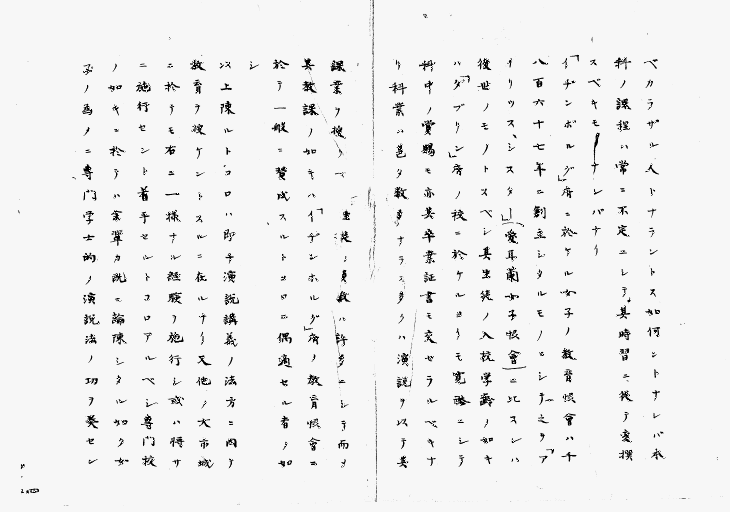 ベカラザル人トナラントス如何ントナレバ本
科ノ課程ハ常ニ不定ニシテ其時習ニ従テ変撰
スベキモノナレバナリ
「イヂンボルグ」府ニ於ケル女子ノ教育協會ハ千
八百六十七年ニ創立シタルモノニシテ之ヲ「ア
イリツス、シスター」(愛耳蘭女子協會)ニ比スレハ
後世ノモノトスベシ其生徒ノ入校学齢ノ如キ
ハ「ダブリン」府ノ校ニ於ケルヨリモ寛略ニシテ
科中ノ賞賜モ亦其卒業証書モ交セラルベキナ
リ科業ハ邑タ数多ナラズタタハ演説ヲ以テ其
課業ヲ授クベ 生徒ノ員数ハ許多ニシテ而メ
其教課ノ如キハ「イヂンボルグ」府ノ教育協會ニ
於テ一般ニ賛成スルトコロニ偶適セル者ノ如
シ
以上陳ルトコロハ即チ演説講義ノ法方ニ因テ
教育ヲ授ケントスルニ在ルナリ又他ノ大市城
ニ於テモ右ニ一様ナル経験ヲ施行シ或ハ将サ
ニ施行セント着手セルトコロアルベシ専門校
ノ如キニ於テハ余輩カ既ニ論陳シタル如ク女
子ノ為メニ専門学士的ノ演説法ノ功ヲ奏セン